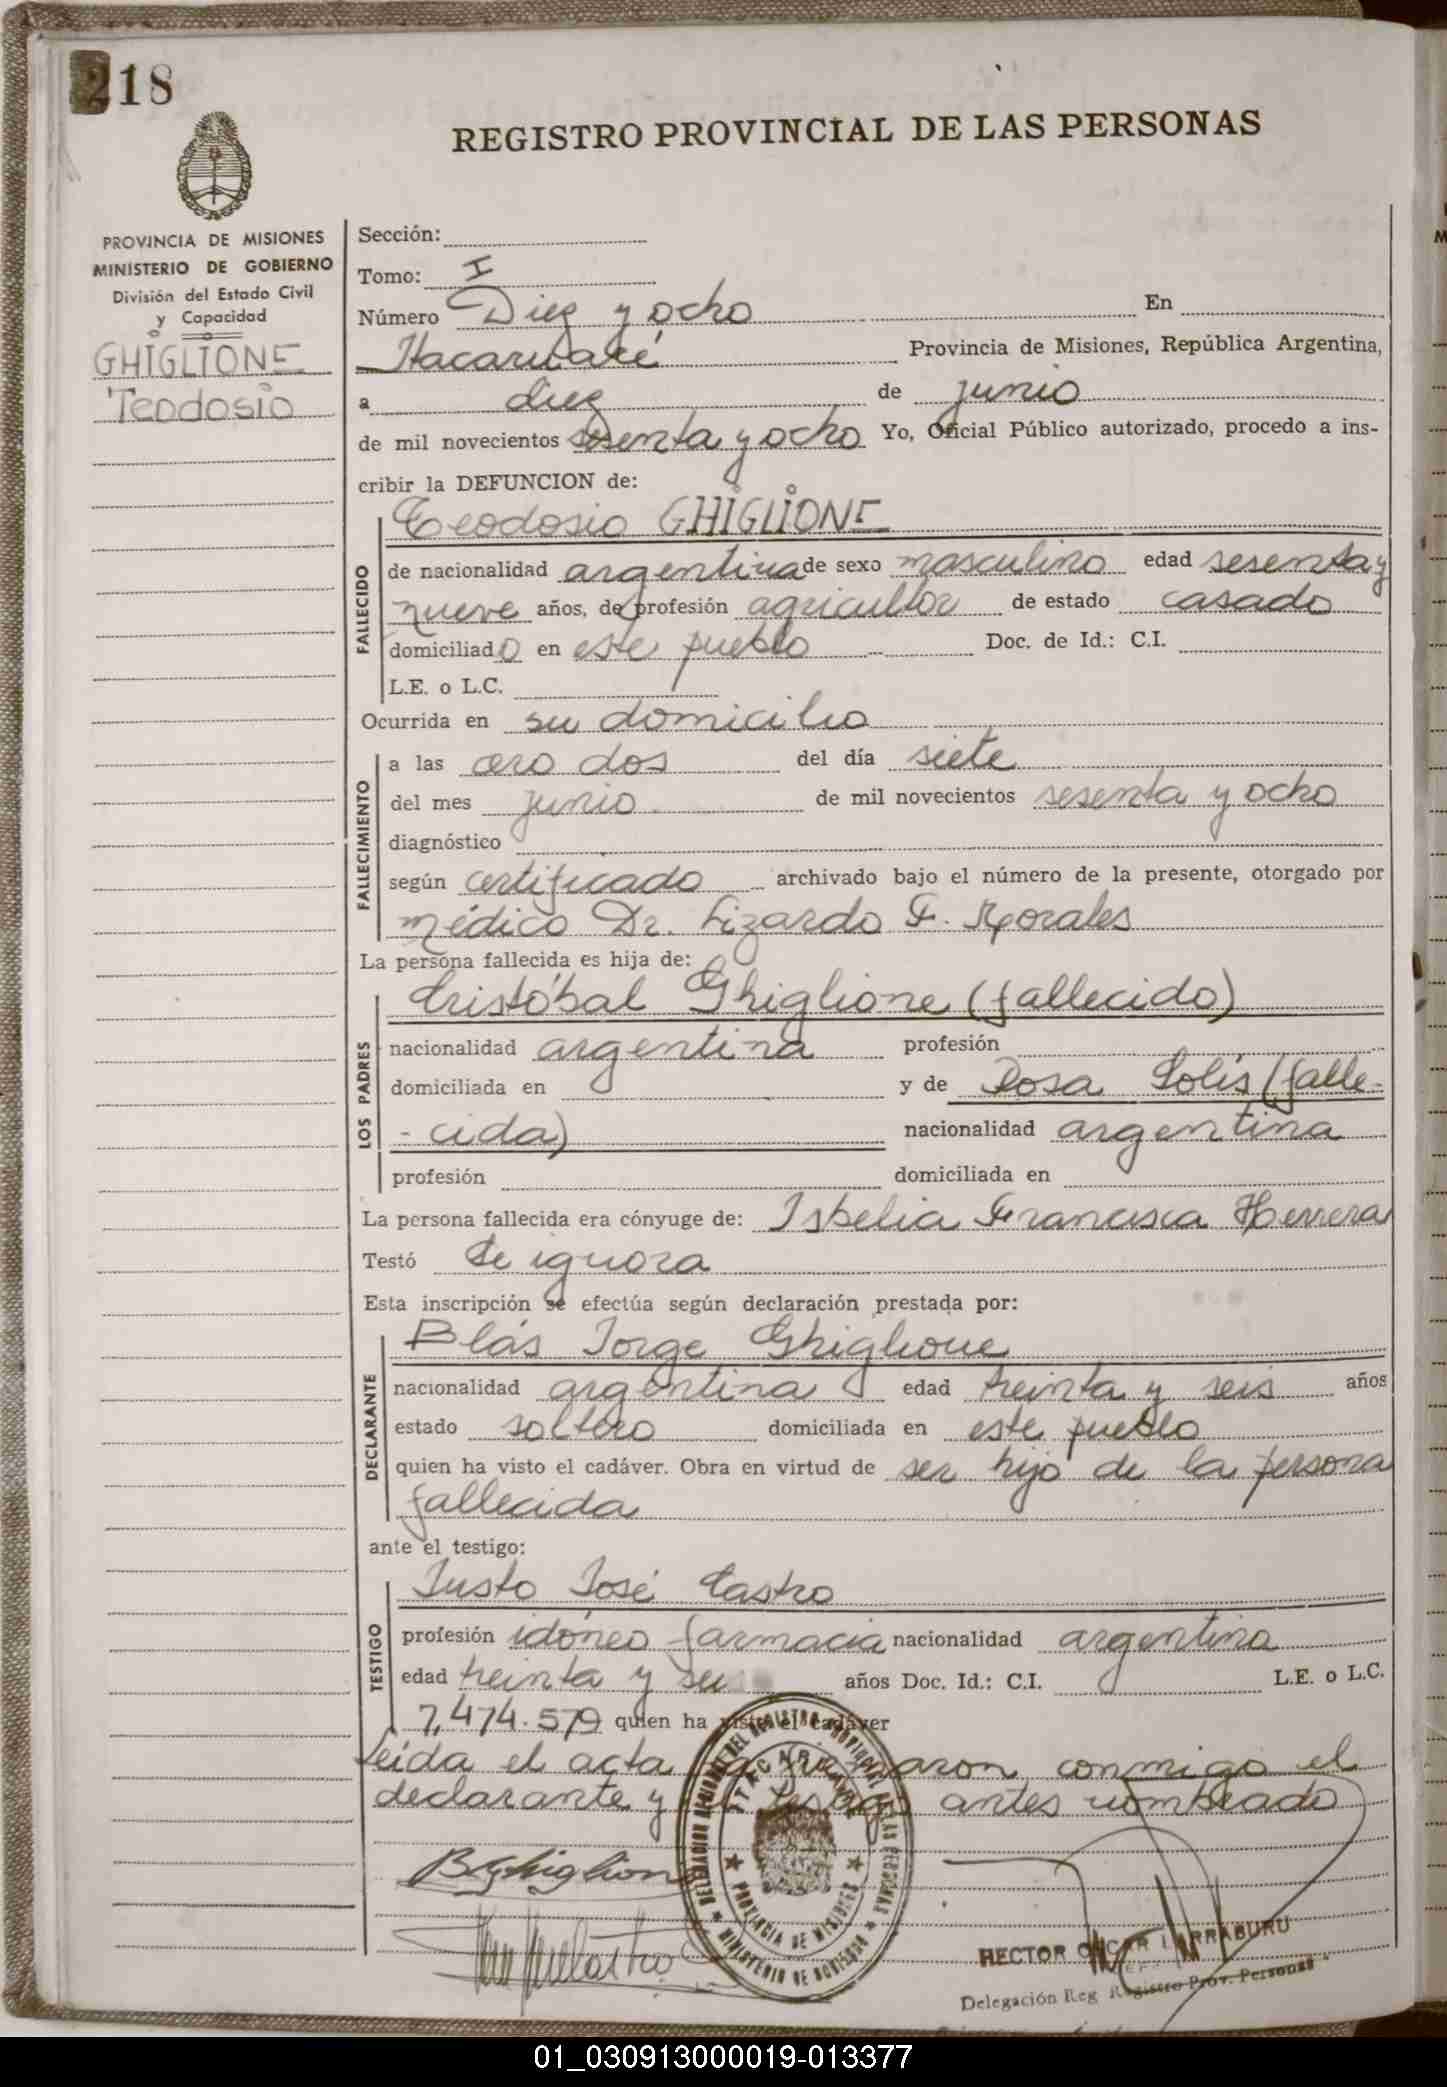 218
REGISTRO PROVINCIAL DE LAS PERSONAS
PROVINCIA DE MISIONES
MINISTERIO DE GOBIERNO
División del Estado Civil
y Capacidad
GHIGLIONE
Teodosio
Sección:
Tomo: I
Número Diez y ocho En
Itacaruaré Provincia de Misiones, República Argentina,
a diez de junio
de mil novecientos sesenta y ocho Yo, Oficial Público autorizado, procedo a ins-
cribir la DEFUNCION de:
Teodosio GHIGLIONE
FALLECIDO
de nacionalidad argentina de sexo masculino edad sesenta y
nueve años, de profesión agricultor de estado casado
domiciliado en este pueblo Doc. de Id.: C.I.
L.E. o L.C.
Ocurrida en su domicilio
FALLECIMIENTO
a las cero dos del día siete
del mes junio de mil novecientos sesenta y ocho
diagnóstico
según certificado archivado bajo el número de la presente, otorgado por
médico Dr. Lizardo F. Morales
La persona fallecida es hija de:
LOS PADRES
Cristóbal Ghiglione (fallecido)
nacionalidad argentina profesión
domiciliada en y de Rosa Solís (falle-
-cida) nacionalidad argentina
profesión domiciliada en
La persona fallecida era cónyuge de: Isbelia Francisca Herrera
Testó Se ignora
Esta inscripción se efectúa según declaración prestada por:
DECLARANTE
Blás Jorge Ghiglione
nacionalidad argentina edad treinta y seis años
estado soltero domiciliada en este pueblo
quien ha visto el cadáver. Obra en virtud de ser hijo de la persona
fallecida
ante el testigo:
TESTIGO
Justo José Castro
profesión idóneo farmacia nacionalidad argentina
edad treinta y seis años Doc. Id.: C.I. L.E. o L.C.
7,474.579 quien ha visto el cadáver
Leída el acta la firmaron conmigo el
declarante y testigo antes nombrado
BGhiglion
DELEGACION REGIONAL DEL REGISTRO PROVINCIAL DE LAS PERSONAS
ITACARUARE
PROVINCIA DE MISIONES
MINISTERIO DE GOBIERNO
HECTOR OSCAR LARRABURU
Delegación Reg. Registro Prov. Personas
01_030913000019-013377